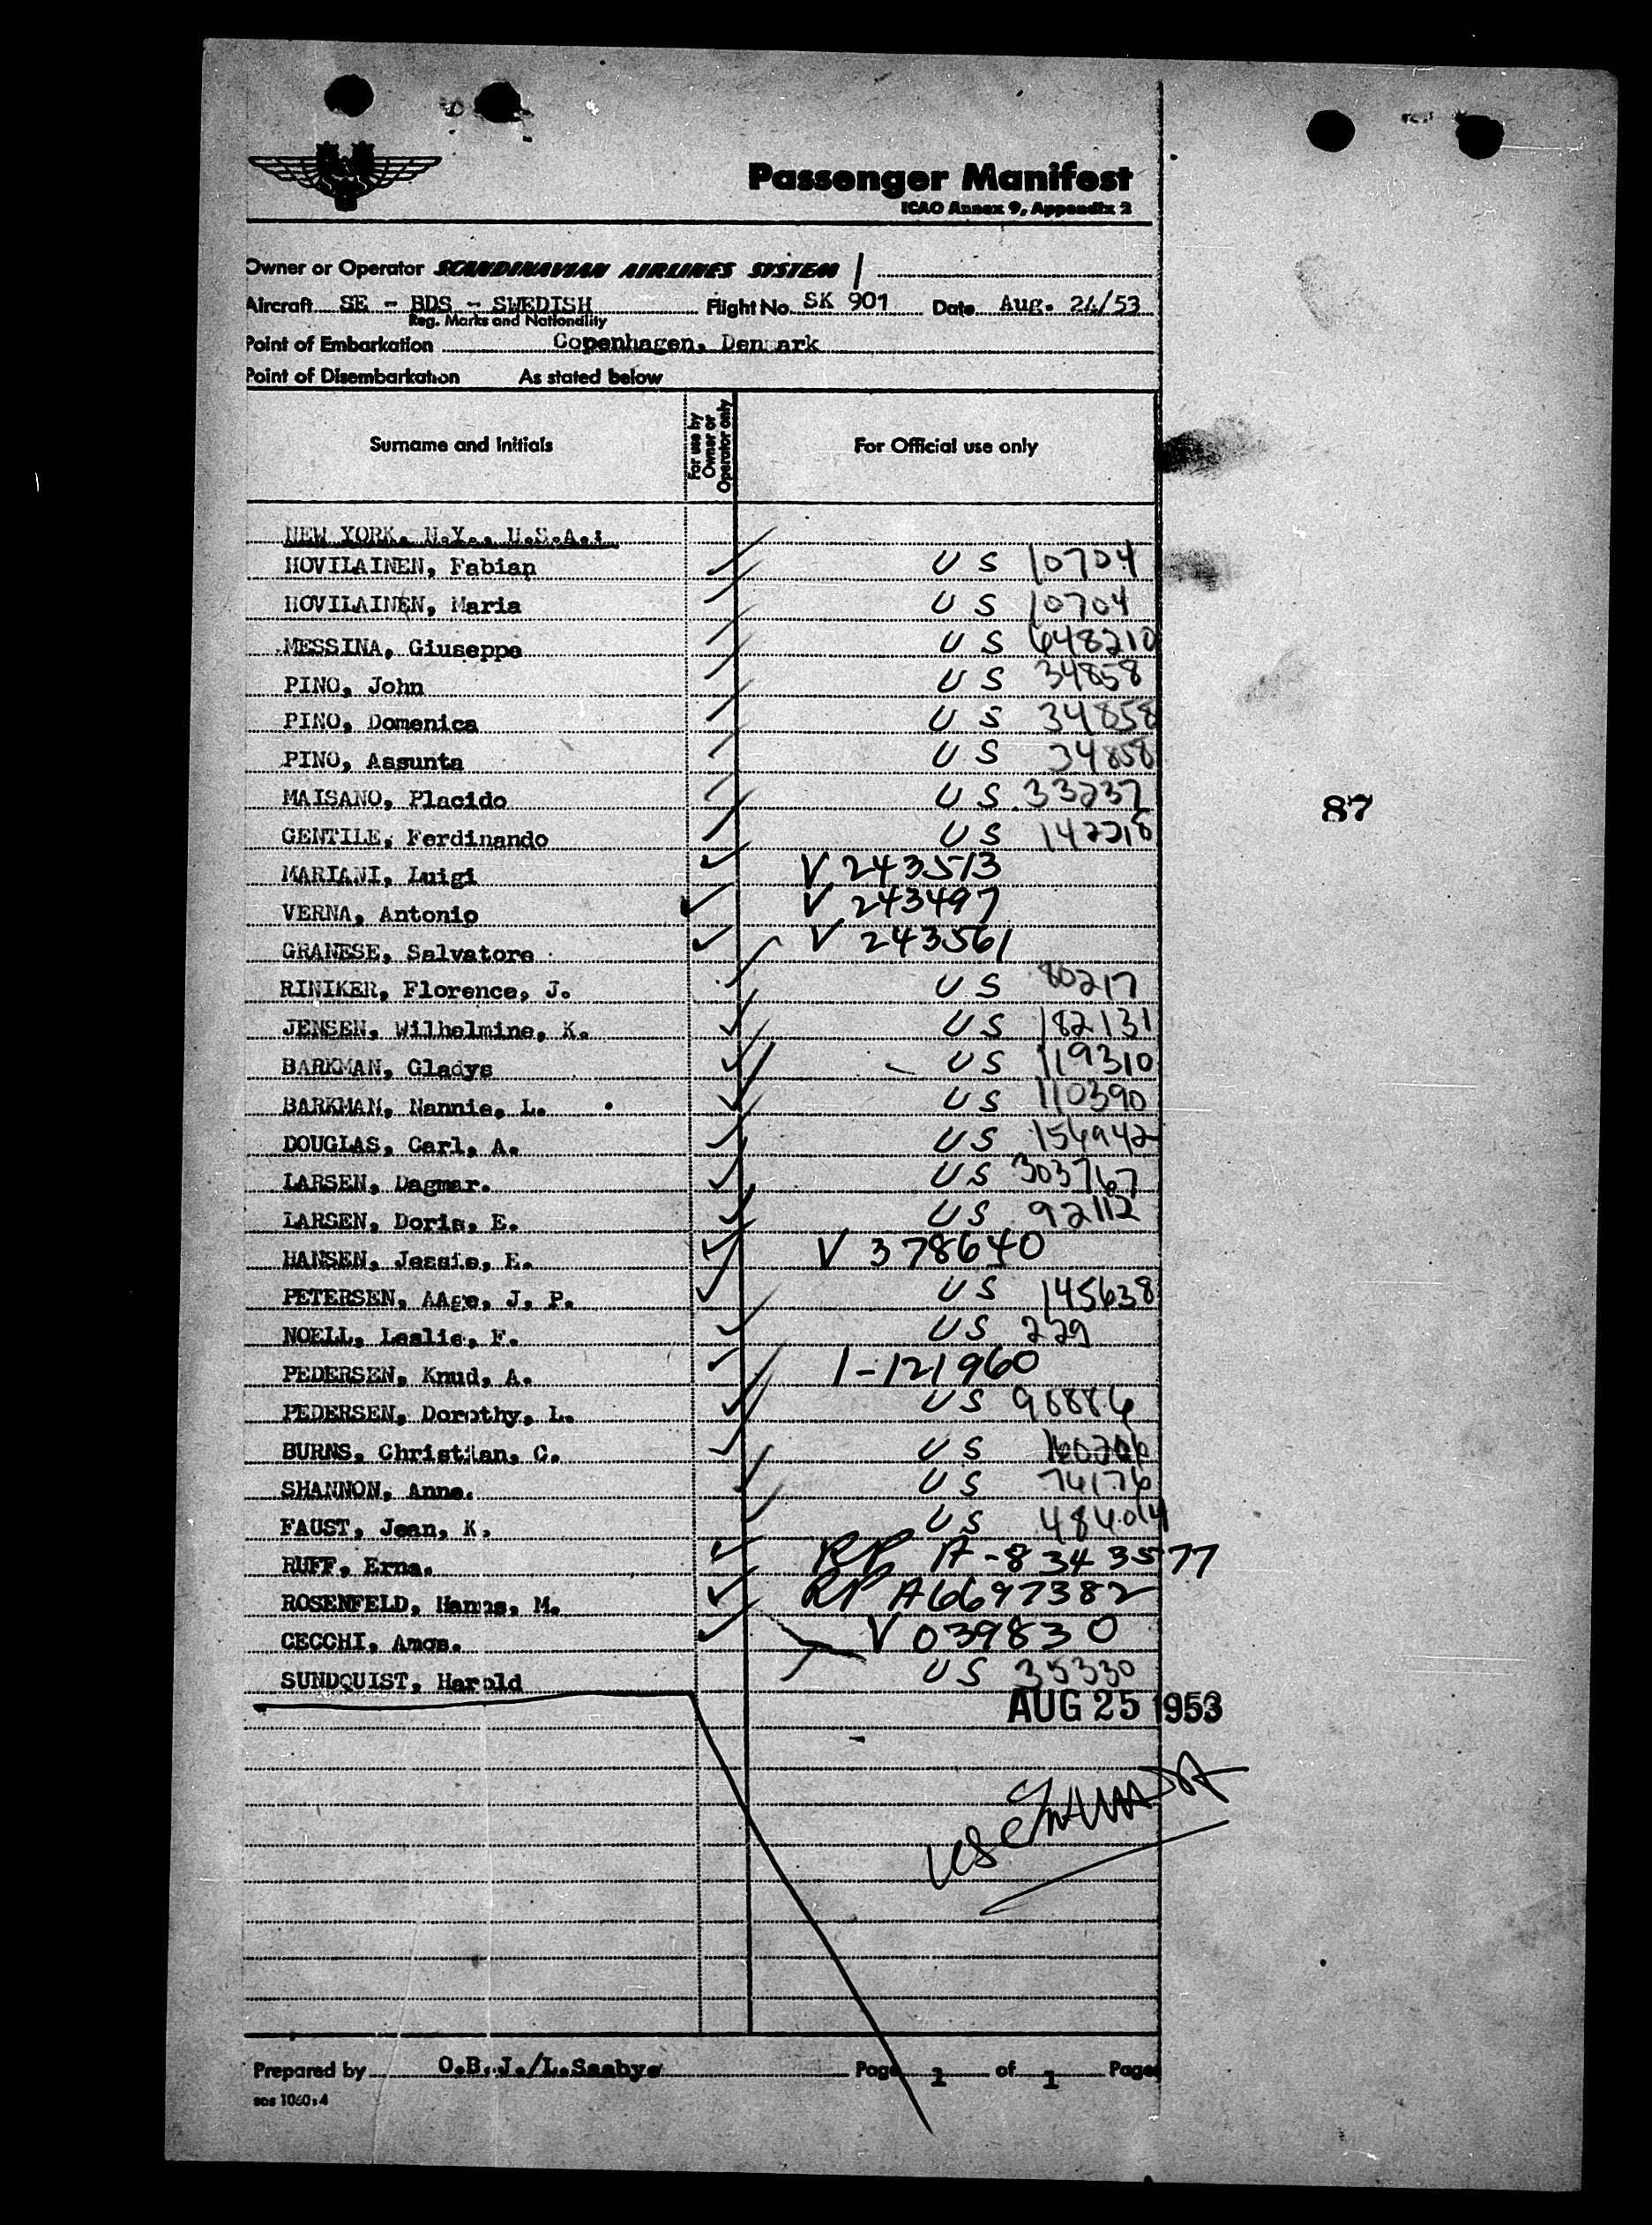 Passenger Manifest
ICAO Annex 9, Appendix 2
Owner or Operator SCANDINAVIAN AIRLINES SYSTEM
Aircraft SE - BDS - SWEDISH Flight No. SK 901 Date Aug. 24/53
Reg. Marks and Nationality
Point of Embarkation Copenhagen, Denmark
Point of Disembarkation As stated below
Surname and Initials For use by Owner or Operator only For Official use only
NEW YORK, N.Y., U.S.A.:
HOVILAINEN, Fabian US 10704
HOVILAINEN, Maria US 10704
MESSINA, Giuseppe US 648210
PINO, John US 34858
PINO, Domenica US 34858
PINO, Assunta US 34858
MAISANO, Placido US 33237
87
GENTILE, Ferdinando US 142218
MARIANI, Luigi V 243513
VERNA, Antonio V 243497
GRANESE, Salvatore V 243561
RINIKER, Florence, J. US 80217
JENSEN, Wilhelmine, K. US 182131
BARKMAN, Gladys US 119310
BARKMAN, Nannie, L. US 110390
DOUGLAS, Carl, A. US 156942
LARSEN, Dagmar. US 303767
LARSEN, Doris, E. US 92112
HANSEN, Jessie, E. V 378640
PETERSEN, AAge, J. P. US 145638
NOELL, Leslie, F. US 229
PEDERSEN, Knud, A. 1-121960
PEDERSEN, Dorothy, L. US 96886
BURNS, Christian, C. US
SHANNON, Anne. US 76176
FAUST, Jean, K. US 484014
RUFF, Erna. RP A-8343577
ROSENFELD, Hanns, M. RP A6697382
CECCHI, Amos. V 039830
SUNDQUIST, Harold US 35330
AUG 25 1953
Prepared by O.B.J./L.Saabye Page 1 of 1 Pages
sas 1060:4